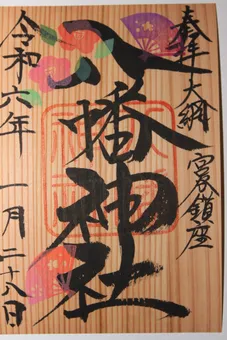 奉拝 大綱
宮谷鎮座
八幡神社
令和六年
一月二十八日